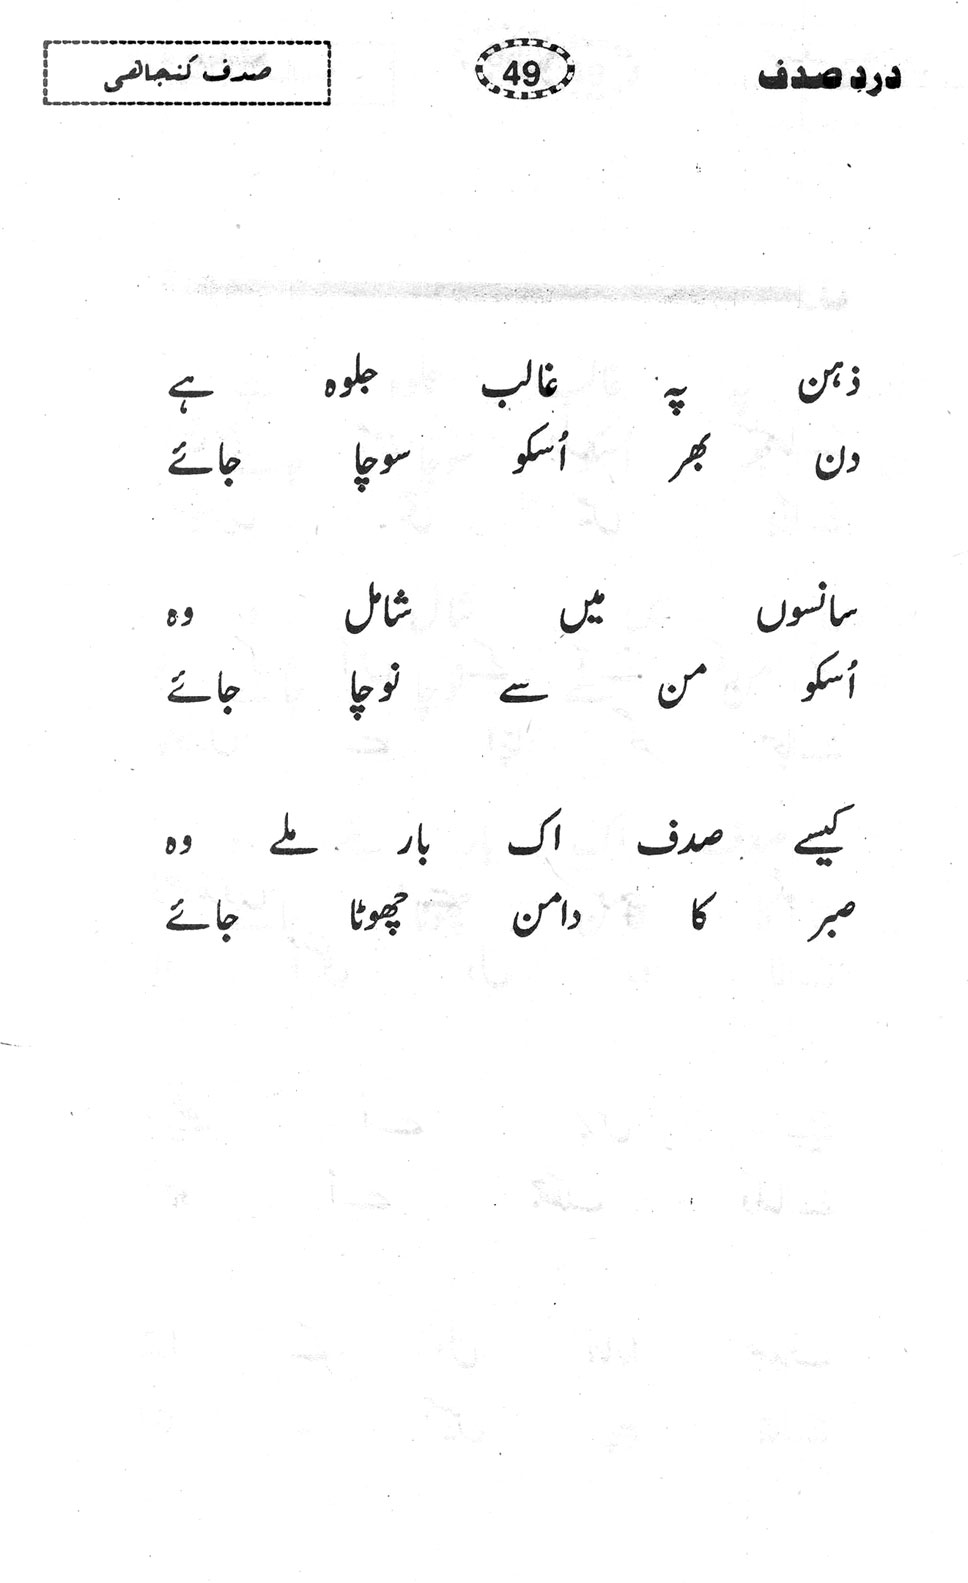 دردِ صدف 49 صدف کنجاهی
ذہن پہ غالب جلوہ ہے
دن بھر اُسکو سوچا جائے
سانسوں میں شامل وہ
اُسکو من سے نوچا جائے
کیسے صدف اک بار ملے وہ
صبر کا دامن چھوٹا جائے